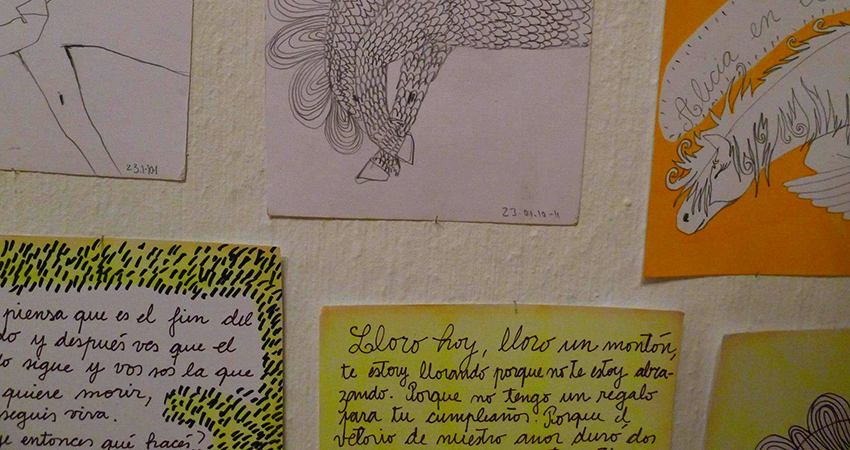 23.1.101
23.01.10-11
Alicia en
piensa que es el fin del
do y después ves que el
lo sigue y vos sos la que
quiere morir,
seguis viva.
entonces qué hacés?
Lloro hoy, lloro un montón,
te estoy llorando porque no te estoy abra-
zando. Porque no tengo un regalo
para tu cumpleaños. Porque el
velorio de nuestro amor duró dos